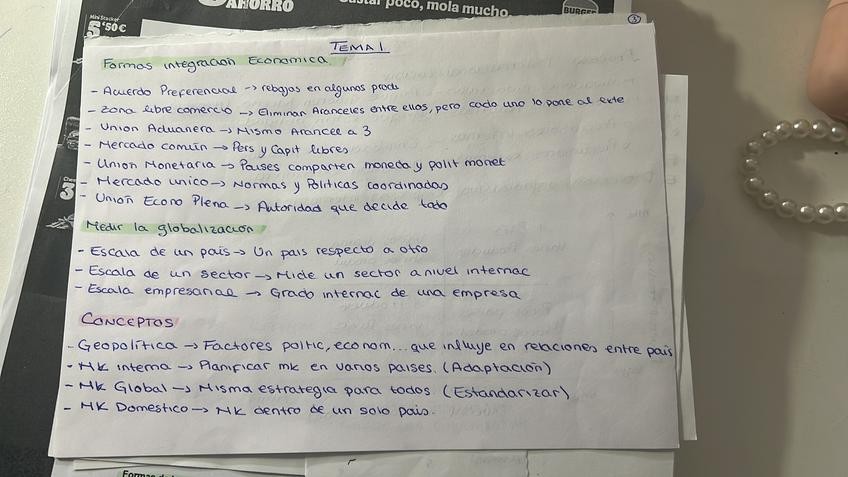 AHORRO
Gastar poco, mola mucho.
BURGER
Mini Stacker
5'50€
3
TEMA 1
Formas integración Económica
- Acuerdo Preferencial → rebajas en algunos prods
- Zona libre comercio → Eliminar Aranceles entre ellos, pero cada uno lo pone al exte
- Unión Aduanera → Mismo Arancel a 3
- Mercado común → Pers y Capit libres
- Unión Monetaria → Países comparten moneda y polit monet
- Mercado unico → Normas y Políticas coordinadas
- Unión Econo Plena → Autoridad que decide todo
Medir la globalización
- Escala de un país → Un país respecto a otro
- Escala de un sector → Mide un sector a nivel internac
- Escala empresarial → Grado internac de una empresa
CONCEPTOS
- Geopolítica → Factores politic, econom... que influye en relaciones entre país
- MK interna → Planificar mk en varios países. (Adaptación)
- MK Global → Misma estrategia para todos. (Estandarizar)
- MK Doméstico → MK dentro de un solo país.